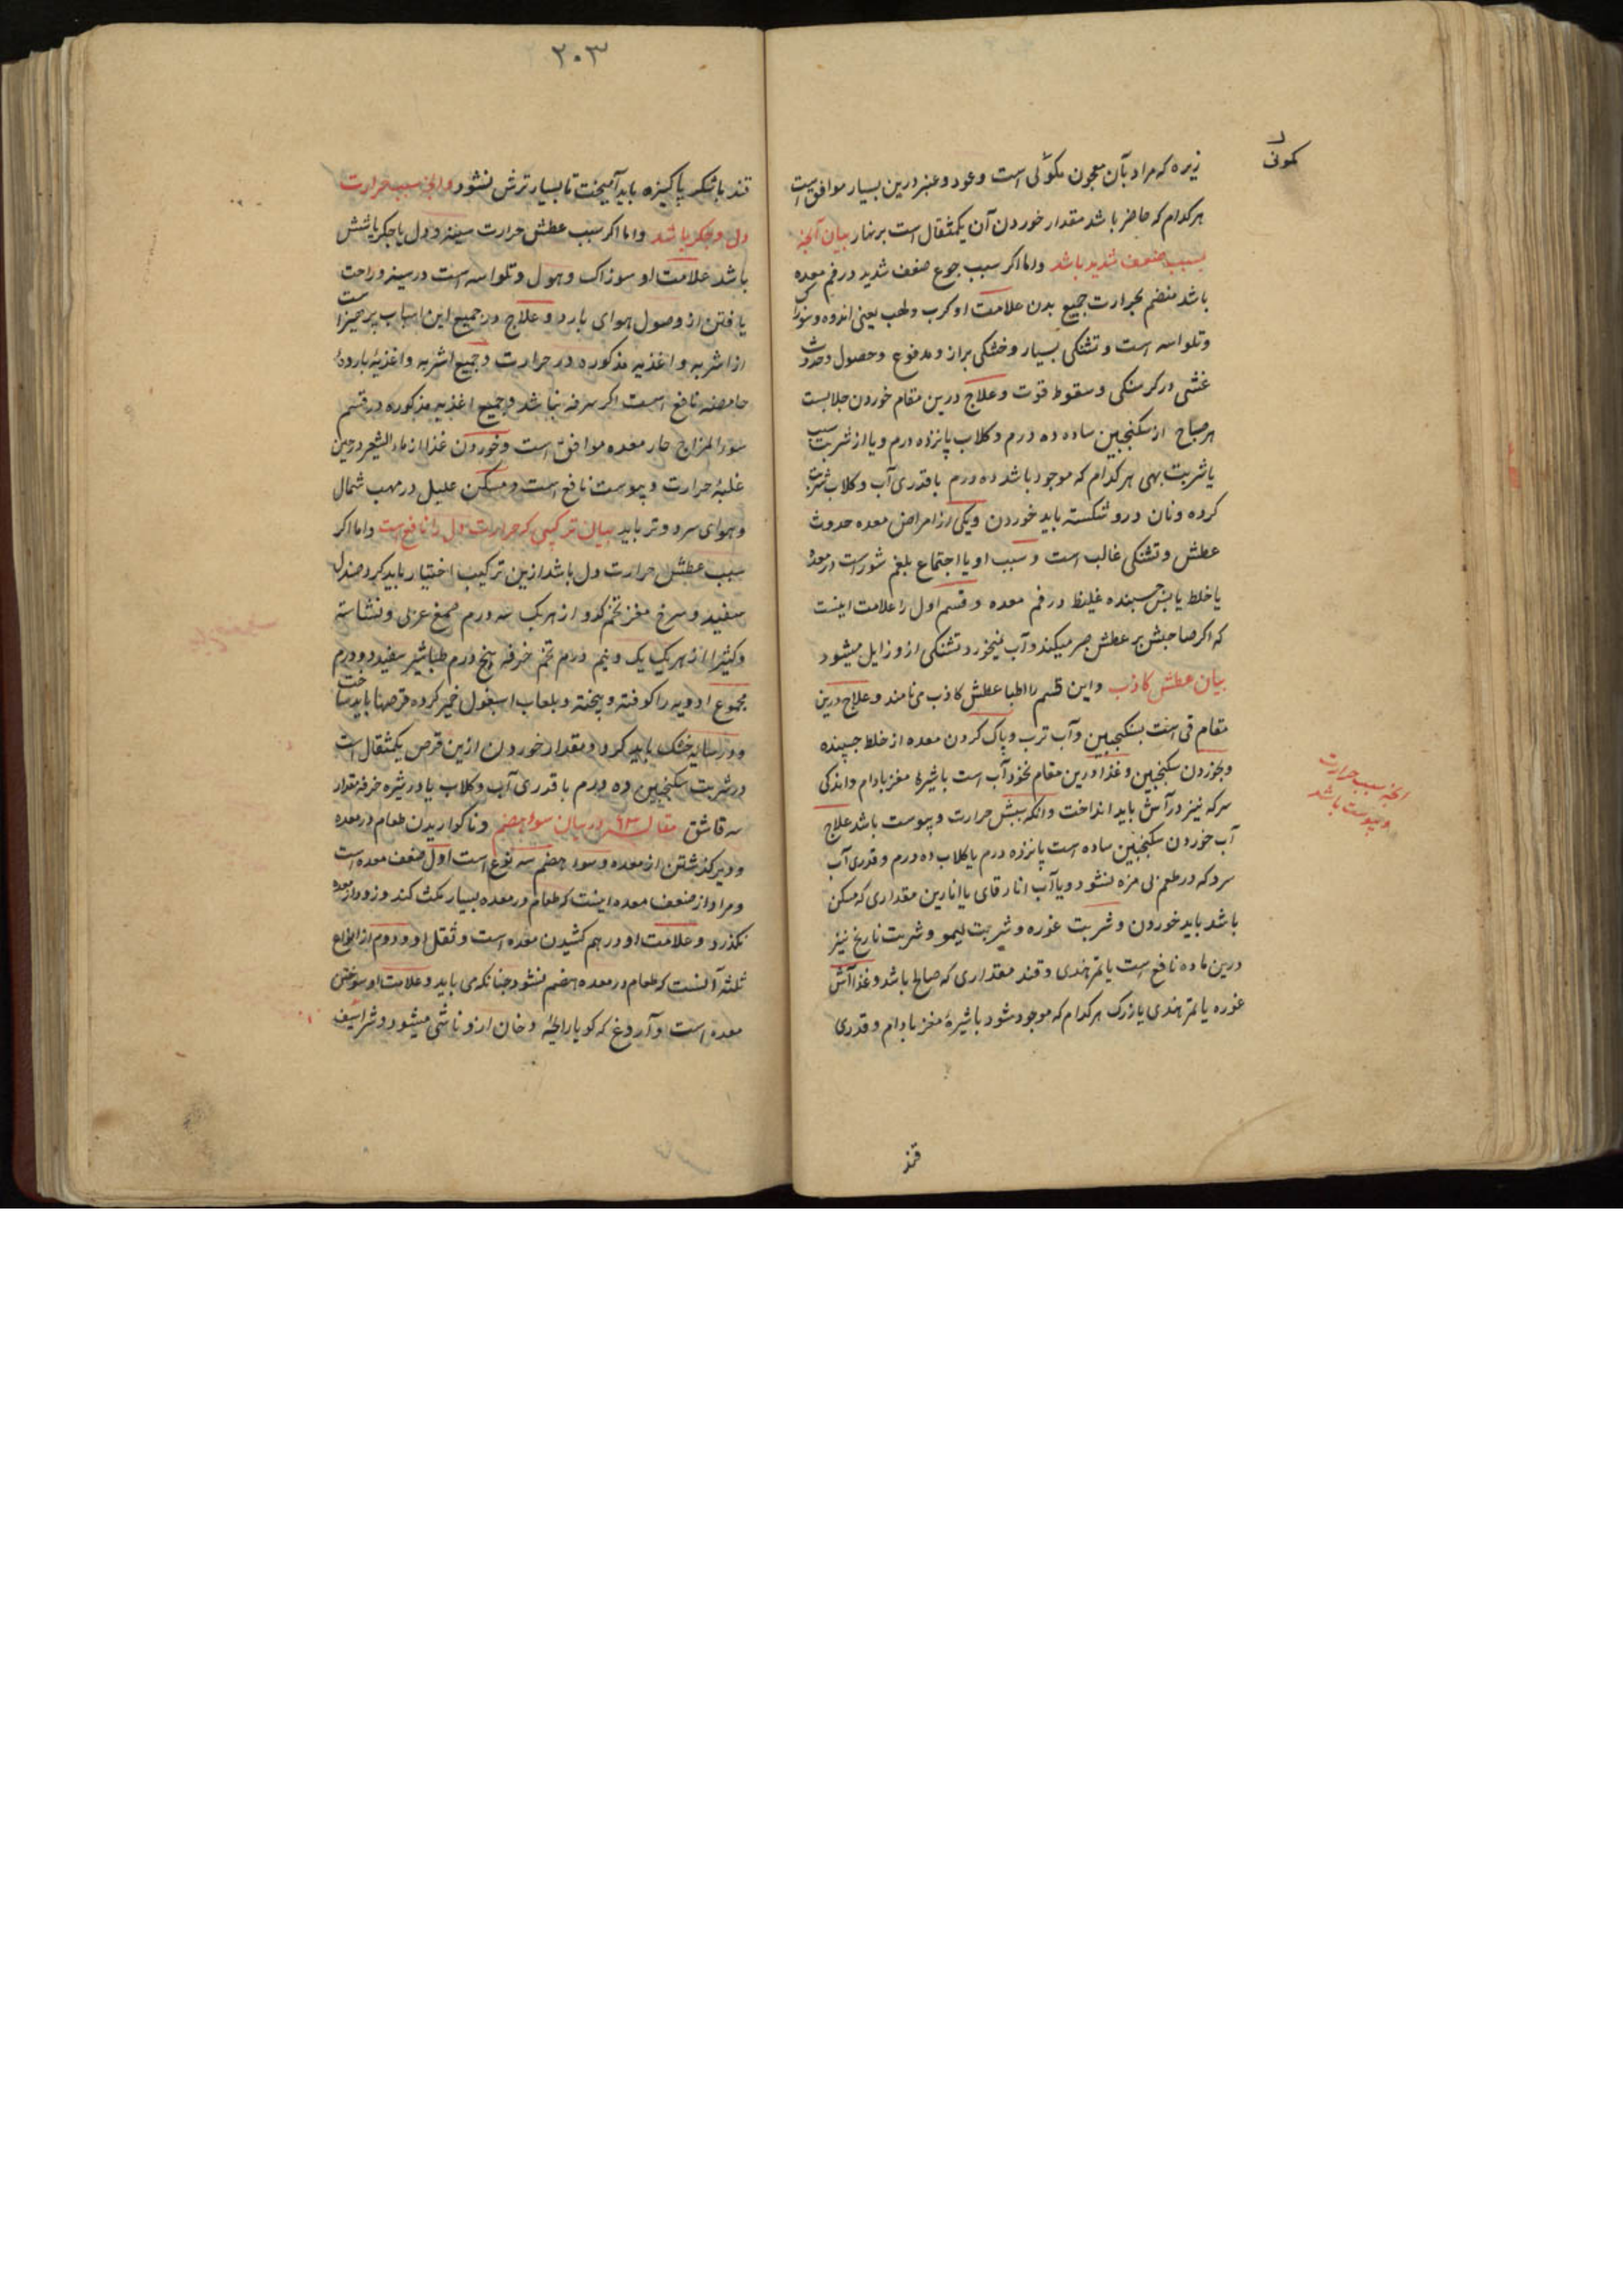 کمونی
زیره که مراد بآن معجون کمونی است وعود وعنبر درین بسیار موافق است
هرکدام که حاضر باشد مقدار خوردن آن یکمثقال است برنهار بیان آنچه
بسبب ضعف شدید باشد واما اکر سبب جوع ضعف شدید در فم معده
باشد منضم بحرارت جمیع بدن علامت او کرب ولهب یعنی اندوه وسوزاک
وتلواسه است وتشنکی بسیار وخشکی براز ومدفوع وحصول وحدوث
غشی در کرسنکی وسقوط قوت وعلاج درین مقام خوردن جلابست
هر صباح از سکنجبین ساده ده درم وکلاب پانزده درم ویا از شربت سیب
یا شربت بهی هرکدام که موجود باشد ده درم با قدری آب وکلاب شربت
کرده ونان درو شکسته باید خوردن ویکی از امراض معده حدوث
عطش وتشنکی غالب است وسبب او یا اجتماع بلغم شور است در معده
یا خلط یابس چسبنده غلیظ در فم معده وقسم اول را علامت اینست
که اکر صاحبش بر عطش صبر میکند وآب نمیخورد تشنکی ازو زایل میشود
بیان عطش کاذب واین قسم را اطبا عطش کاذب می نامند وعلاج درین
مقام قی است بسکنجبین وآب ترب وپاک کردن معده از خلط چسپنده
وبخوردن سکنجبین وغذا درین مقام نخود آب است با شیرۀ مغز بادام واندکی
سرکه نیز در آش باید انداخت وانکه سببش حرارت ویبوست باشد علاج
آب خوردن سکنجبین ساده است پانزده درم یا کلاب ده درم وقدری آب
سرد که در طعم بی مزه نشود ویا آب انار قای یا انارین مقداری که مسکن
باشد باید خوردن وشربت غوره وشربت لیمو وشربت نارنج نیز
درین ماده نافع است یا تمرهندی وقند مقداری که صالح باشد وغذا آش
غوره یا تمرهندی یا زرک هرکدام که موجود شود با شیرۀ مغز بادام وقدری
انچه سبب حرارت
ویبوست باشد
قند
۲۰۳
قند باشکر پاکیزه باید آمیخت تا بسیار ترش نشود وانچه سبب حرارت
دل وجکر باشد واما اکر سبب عطش حرارت سینه ودل یا جکر یا شش
باشد علامت او سوزاک وهول وتلواسه است در سینه وراحت
یافتن از وصول هوای بارد وعلاج در جمیع این اسباب پرهیز است
از اشربه واغذیه مذکوره در حرارت وجمیع اشربه واغذیۀ باردۀ
حامضه نافع است اکر سرفه نباشد وجمیع اغذیه مذکوره در قسم
سوء المزاج حار معده موافق است وخوردن غذا از ماء الشعیر در حین
غلبۀ حرارت ویبوست نافع است ومسکن علیل در مهب شمال
وهوای سرد وتر باید بیان ترکیبی که حرارت دل را نافع است واما اکر
سبب عطش حرارت دل باشد ازین ترکیب اختیار باید کرد صندل
سفید وسرخ مغز تخم کدو از هریک سه درم صمغ عربی ونشاسته
وکتیرا از هریک یک ونیم درم تخم خرفه پنج درم طباشیر سفید دو درم
مجموع ادویه را کوفته وبیخته وبلعاب اسبغول خمیر کرده قرصها باید ساخت
ودر سایه خشک باید کرد ومقدار خوردن ازین قرص یکمثقال است
در شربت سکنجبین ده درم با قدری آب وکلاب یا در شیره خرفه مقدار
سه قاشق مقاله ۶۳ در بیان سوء هضم وناکواریدن طعام در معده
ودیر کذشتن از معده وسوء هضم سه نوع است اول ضعف معده است
ومراد از ضعف معده اینست که طعام در معده بسیار مکث کند وزود از معده
نکذرد وعلامت او درهم کشیدن معده است وثقل او ودوم از انواع
ثلثه آنست که طعام در معده هضم نشود چنانکه می باید وعلامت او سوختن
معده است وآروغ که کویا رایحۀ دخان ازو ناشی میشود وشراسیف